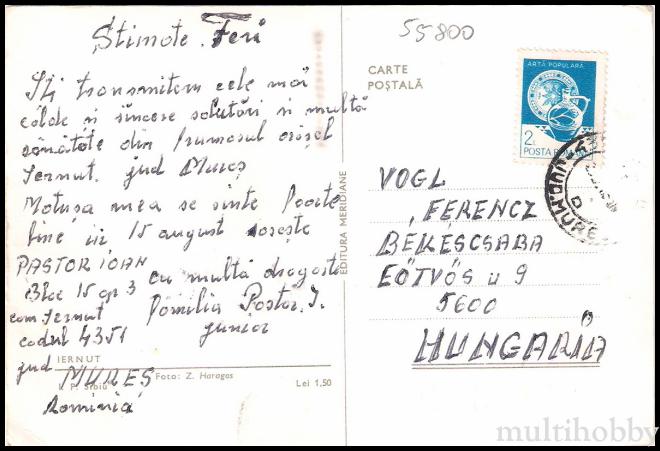 Stimate Feri
Îți transmitem cele mai
calde și sincere salutări și multă
sănătate din frumosul orașel
Iernut jud Mureș
Matușa mea se simte foarte
bine
15 august
PASTOR IOAN
Bloc 15 ap 3
com Iernut
codul 4351
jud
MUREȘ
România
cu multă dragoste
familia Pastor I.
junior
IERNUT
I. P. Sibiu
Foto: Z. Haragos
Lei 1,50
EDITURA MERIDIANE
55800
CARTE
POȘTALĂ
ARTĂ POPULARĂ
2L
POSTA ROMÂNĂ
JUD. MUREȘ
VOGL
FERENCZ
BÉKÉSCSABA
EÖTVÖS u 9
5600
HUNGARIA
multihobby